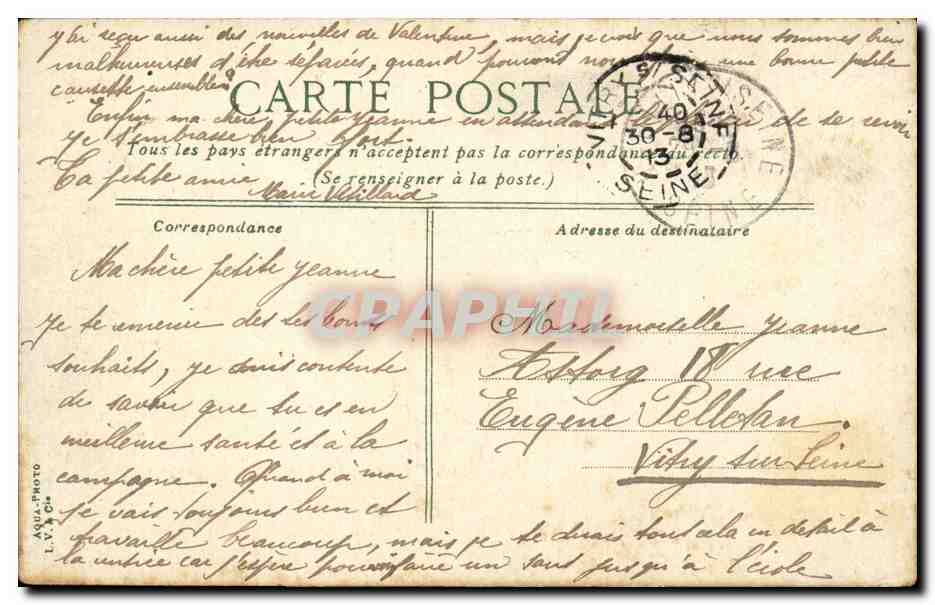 y'ai reçu aussi des nouvelles de Valentine, mais je crois que nous sommes bien
malheureuses d'être séparées, quand pourrons nous une bonne petite
causette ensemble?
CARTE POSTALE
Enfin ma chère petite Jeanne en attendant de se revoir
je t'embrasse bien fort.
Tous les pays étrangers n'acceptent pas la correspondance au recto.
(Se renseigner à la poste.)
Ta petite amie
Marie Vétillard
VITRY S/ SEINE
40
30-8
13
SEINE
Correspondance
Adresse du destinataire
Ma chère petite Jeanne
Je te remercie des tes bons
souhaits, je suis contente
de savoir que tu es en
meilleure santé et à la
campagne. Quand à moi
je vais toujours bien et
travaille beaucoup, mais je te dirais tout cela en détail à
la rentrée car j'espère faire un saut jusqu'à l'école
Mademoiselle Jeanne
Astorg 18 rue
Eugène Pelletan.
Vitry sur Seine
AQUA-PHOTO
L.V. & Cie
CPAPHIL